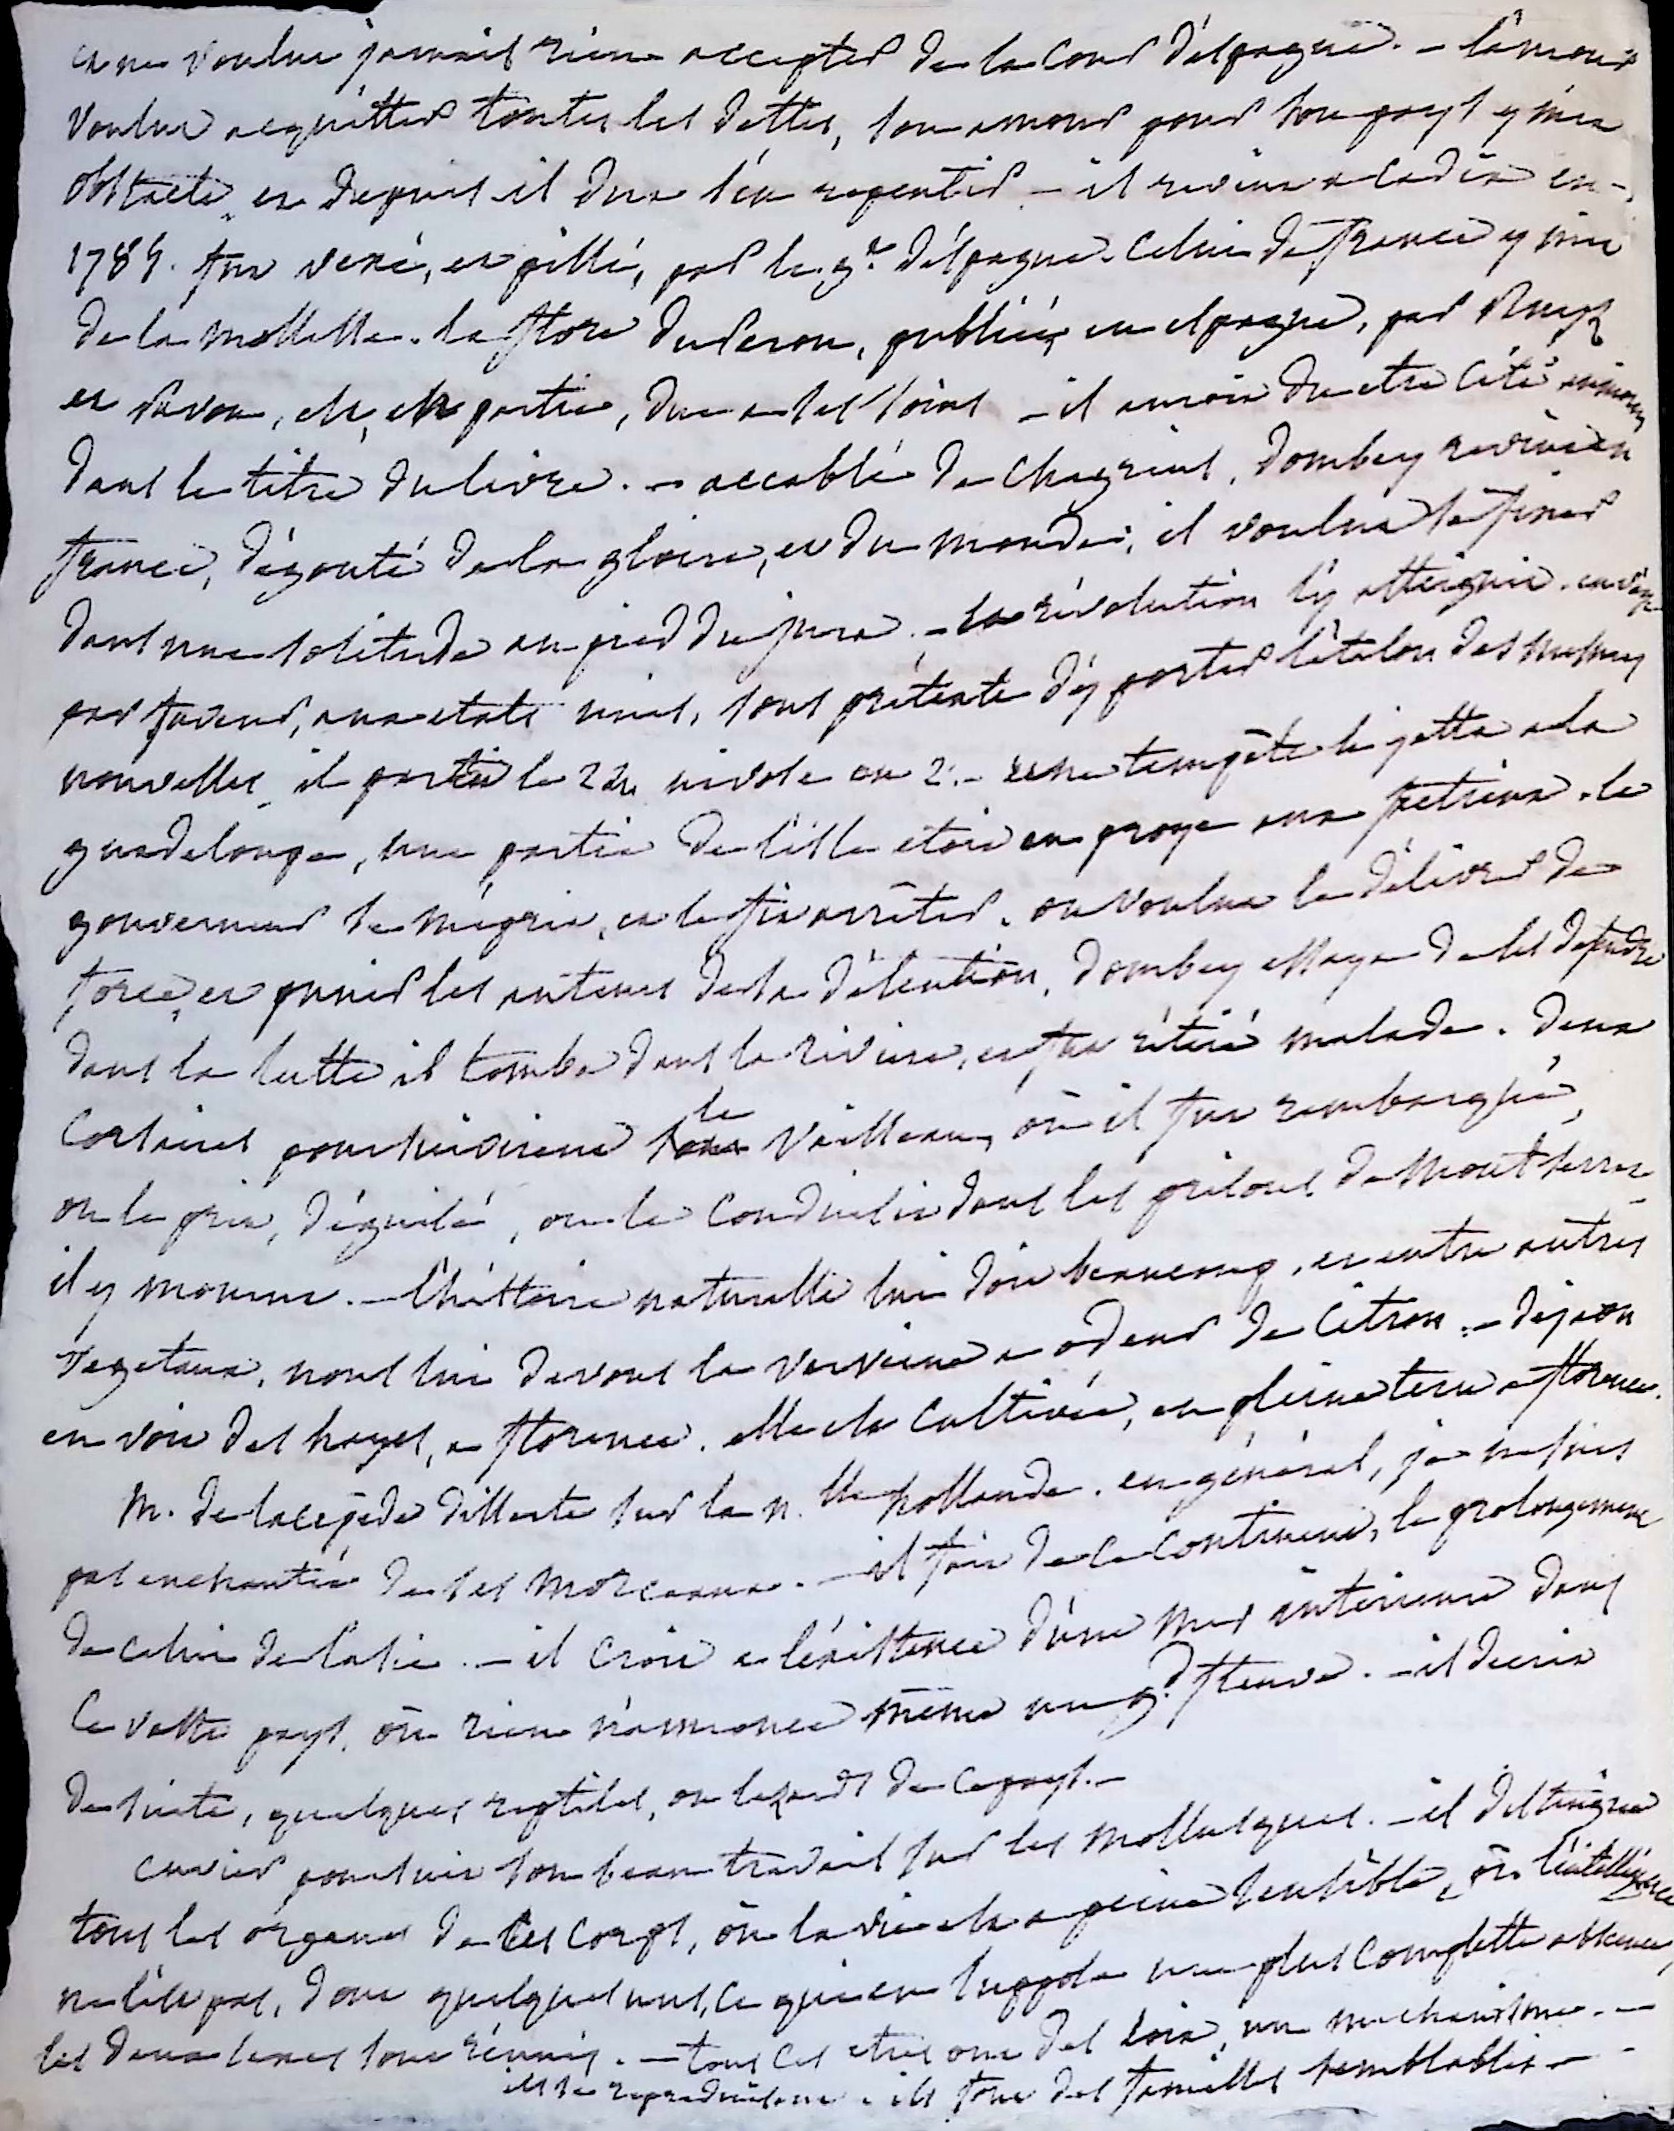 et ne voulut jamais rien accepter de la cour d'espagne. – l'amour
voulut acquitter toutes les dettes, son amour pour son pays y mit
obstacle, et depuis il dut s'en repentir – il revint a cadix en
1785. fut vexé, et pillé, par le g.t d'espagne. celui de france y mit
de la mollesse. la flore du Perou, publiée en espagne, par Ruiz
et Pavon, est, en partie, due a ses soins – il auroit du etre cité
dans le titre du livre. – accablé de chagrins, dombey revint en
france, dégouté de la gloire, et du monde, il voulut se fixer
dans une solitude au pied du jura. – la révolution l'y atteignit. envoyé
par faveur, aux etats unis, sous prétexte d'y porter l'étalon des mesures
nouvelles, il partit le 24 nivose an 2. – une tempête le jetta a la
guadeloupe, une partie de l'isle etoit en proye aux factieux. le
gouverneur se méprit, et le fit arrêter. on voulut le délivrer de
force, et punir les auteurs de sa détention, dombey essaya de les defendre
dans la lutte il tomba dans la riviere, et fut rétiré malade. deux
corsaires poursuivirent le vaisseau, où il fut rembarqué,
on le prit, déguisé, on le conduisit dans les prisons de Mont serrat
il y mourut. – l'histoire naturelle lui doit beaucoup, et entre autres
vegetaux, nous lui devons la verveine a odeur de citron. – deja on
en voit des hayes, a florence. elle est cultivée, en pleine terre a florence.
M. de lacepède disserte sur la n.lle hollande. en général, je ne suis
pas enchantée de ses morceaux. – il fait de ce continent, le prolongement
de celui de l'asie. – il croit a l'existence d'une mer intérieure dans
ce vaste pays, où rien n'annonce même un g.d fleuve. – il decrit
de suite, quelques reptiles, ou lezards de ce pays. –
cuvier poursuit son beau travail sur les mollusques. – il distingue
tous les organes de ces corps, où la vie est a peine sensible, où l'intelligence
ne l'est pas, dont quelques uns, ce qui en suppose une plus complette absence,
les deux sexes sont réunis. – tous ces etres ont des loix, un mechanisme. –
ils se reproduisent. ils font des familles semblables –